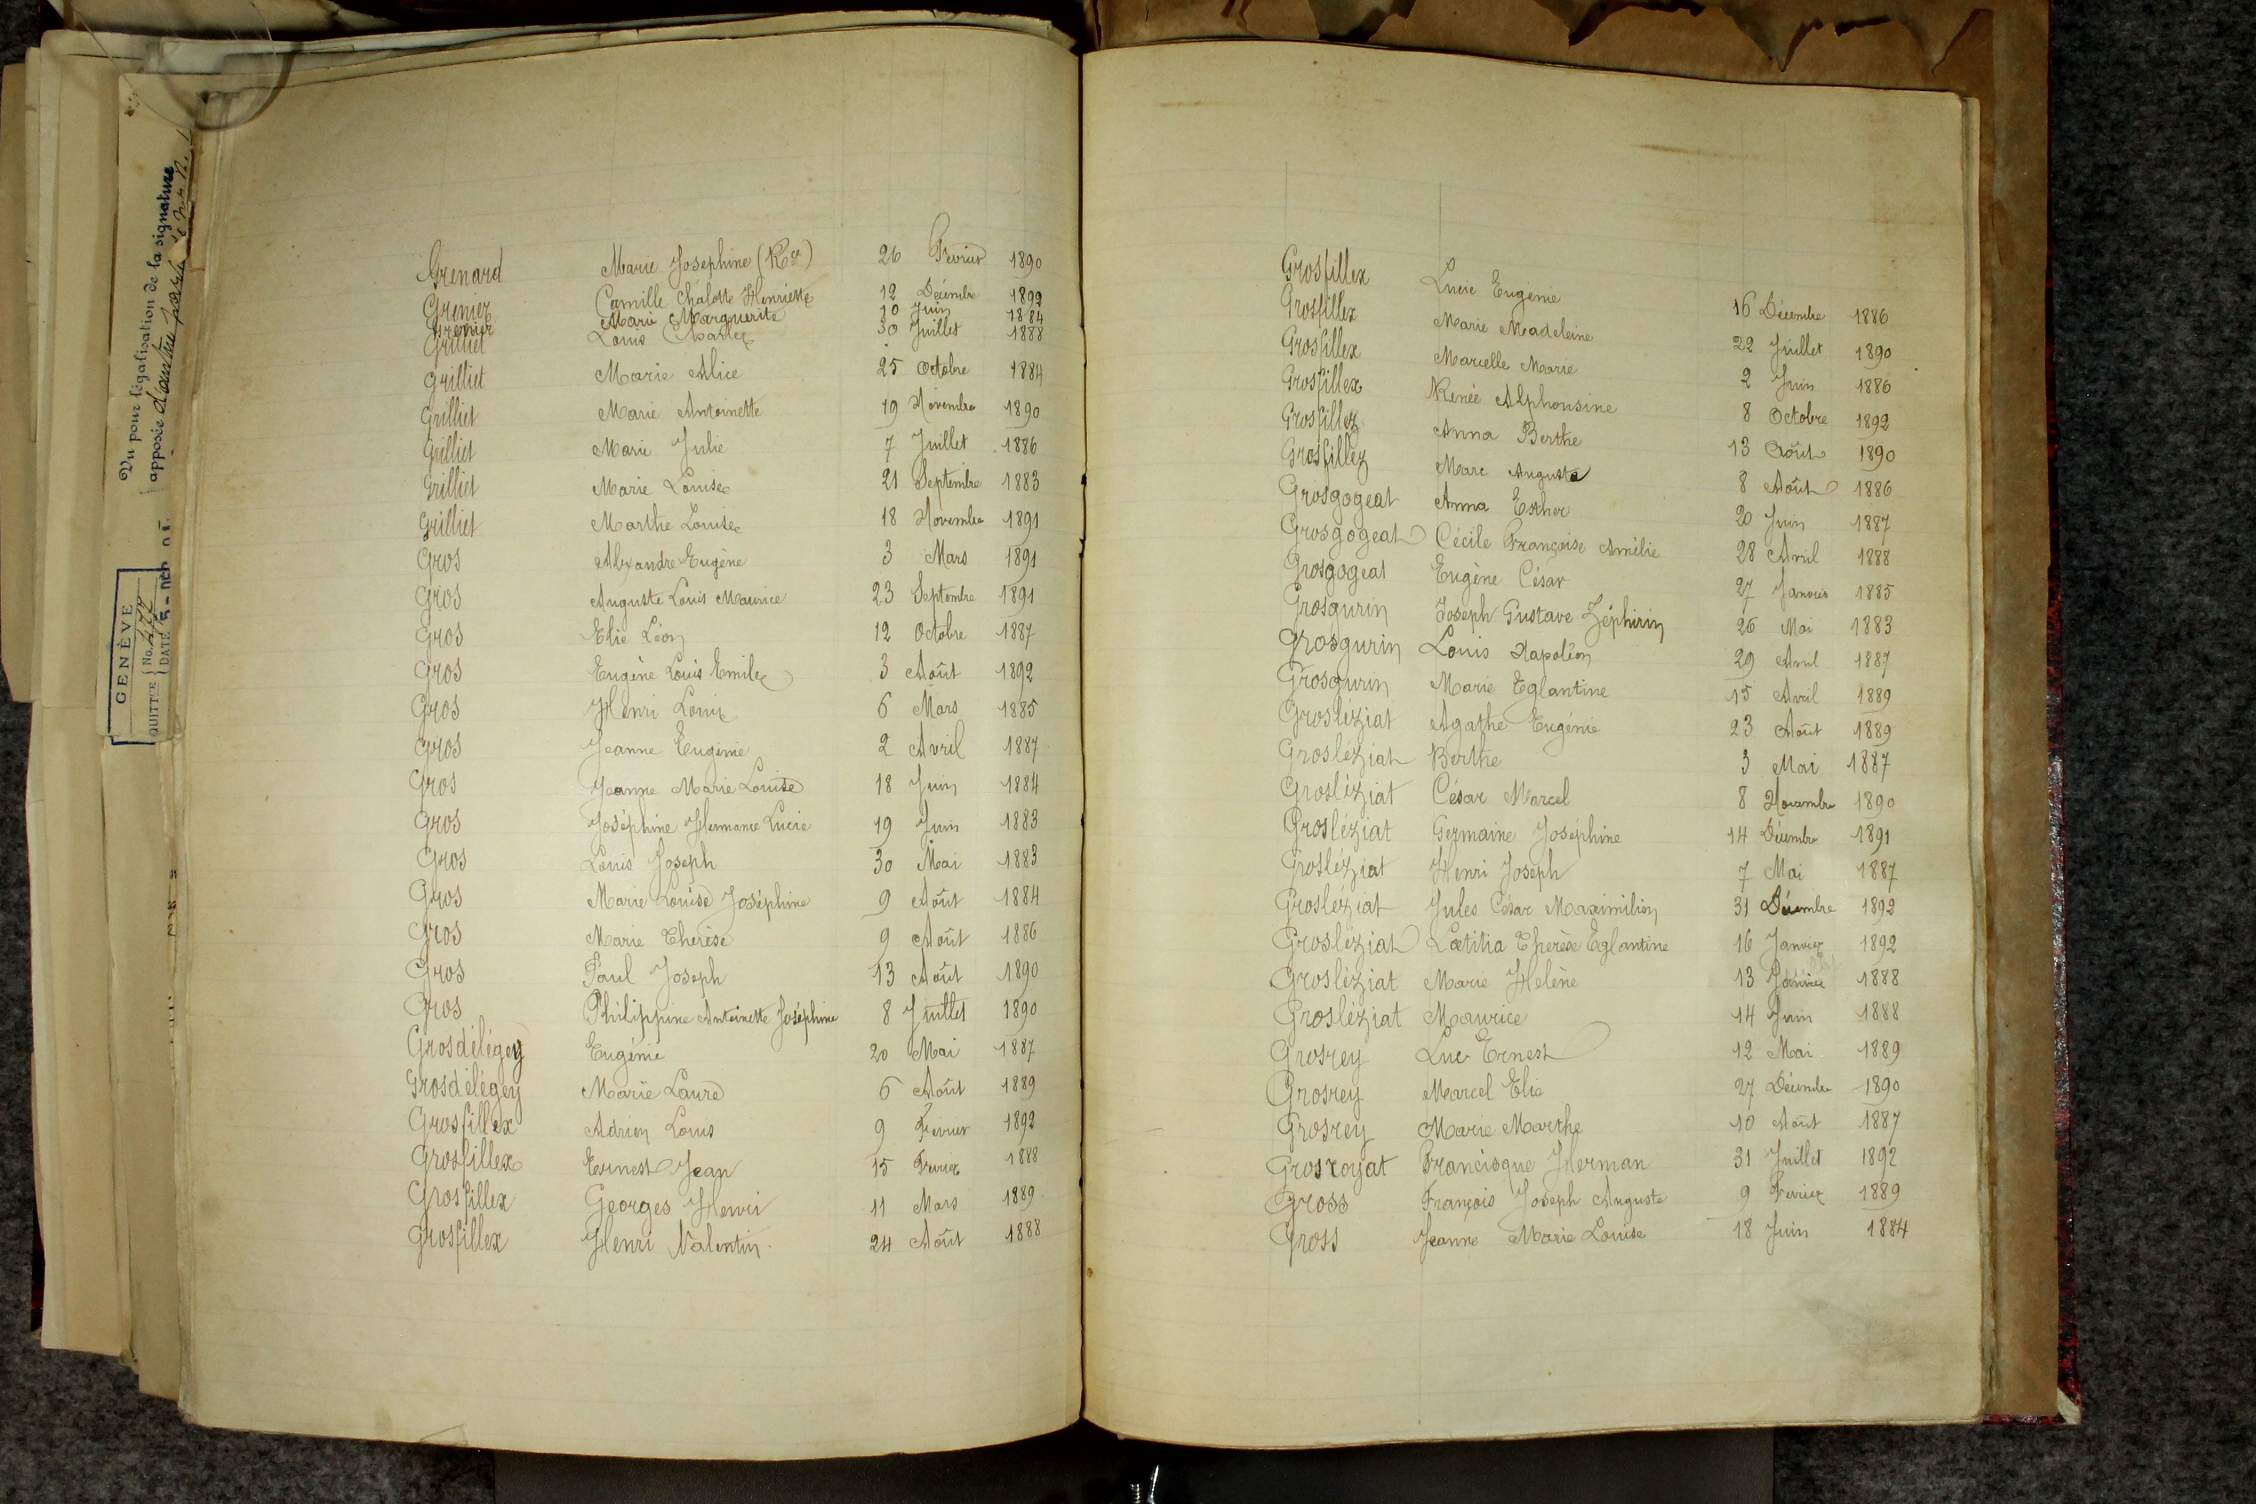 Vu pour légalisation de la signature
apposée d'autre part
GENÈVE
QUITTCE No.
DATE
Grenard Marie Josephine (Rce) 26 Fevrier 1890
Grenier Camille Chalotte Henriette 12 Décembre 1892
Grenier Marie Marguerite 10 Juin 1884
Grilliet Louis Charles 30 Juillet 1888
Grilliet Marie Alice 25 Octobre 1884
Grilliet Marie Antoinette 19 Novembre 1890
Grilliet Marie Julie 7 Juillet 1886
Grilliet Marie Louise 21 Septembre 1883
Grilliet Marthe Louise 18 Novembre 1891
Gros Alexandre Eugène 3 Mars 1891
Gros Auguste Louis Maurice 23 Septembre 1891
Gros Elie Léon 12 Octobre 1887
Gros Eugène Louis Emile 3 Août 1892
Gros Henri Louis 6 Mars 1885
Gros Jeanne Eugénie 2 Avril 1887
Gros Jeanne Marie Louise 18 Juin 1884
Gros Joséphine Hermance Lucie 19 Juin 1883
Gros Louis Joseph 30 Mai 1883
Gros Marie Louise Joséphine 9 Août 1884
Gros Marie Therèse 9 Août 1886
Gros Paul Joseph 13 Août 1890
Gros Philippine Antoinette Joséphine 8 Juillet 1890
Grosdélégey Eugénie 20 Mai 1887
Grosdélégey Marie Laure 6 Août 1889
Grosfillex Adrien Louis 9 Fevrier 1892
Grosfillex Ernest Jean 15 Fevrier 1888
Grosfillex Georges Henri 11 Mars 1889
Grosfillex Henri Valentin 24 Août 1888
Grosfillex Lucie Eugénie 16 Décembre 1886
Grosfillex Marie Madeleine 22 Juillet 1890
Grosfillex Marcelle Marie 2 Juin 1886
Grosfillex Renée Alphonsine 8 Octobre 1892
Grosfillex Anna Berthe 13 Août 1890
Grosfillex Marc Auguste 8 Août 1886
Grosgogeat Anna Esther 20 Juin 1887
Grosgogeat Cécile Françoise Amélie 28 Avril 1888
Grosgogeat Eugène César 27 Janvier 1885
Grosgurin Joseph Gustave Zéphirin 26 Mai 1883
Grosgurin Louis Napoléon 29 Avril 1887
Grosgurin Marie Eglantine 15 Avril 1889
Grosléziat Agathe Eugénie 23 Août 1889
Grosléziat Berthe 3 Mai 1887
Grosléziat César Marcel 8 Novembre 1890
Grosléziat Germaine Joséphine 14 Décembre 1891
Grosléziat Henri Joseph 7 Mai 1887
Grosléziat Jules César Maximilien 31 Décembre 1892
Grosléziat Lœtitia Therèse Eglantine 16 Janvier 1892
Grosléziat Marie Helène 13 Janvier 1888
Grosléziat Maurice 14 Juin 1888
Grosrey Luc Ernest 12 Mai 1889
Grosrey Marcel Elie 27 Décembre 1890
Grosrey Marie Marthe 10 Août 1887
Grosroyat Francisque Herman 31 Juillet 1892
Gross François Joseph Auguste 9 Fevrier 1889
Gross Jeanne Marie Louise 18 Juin 1884